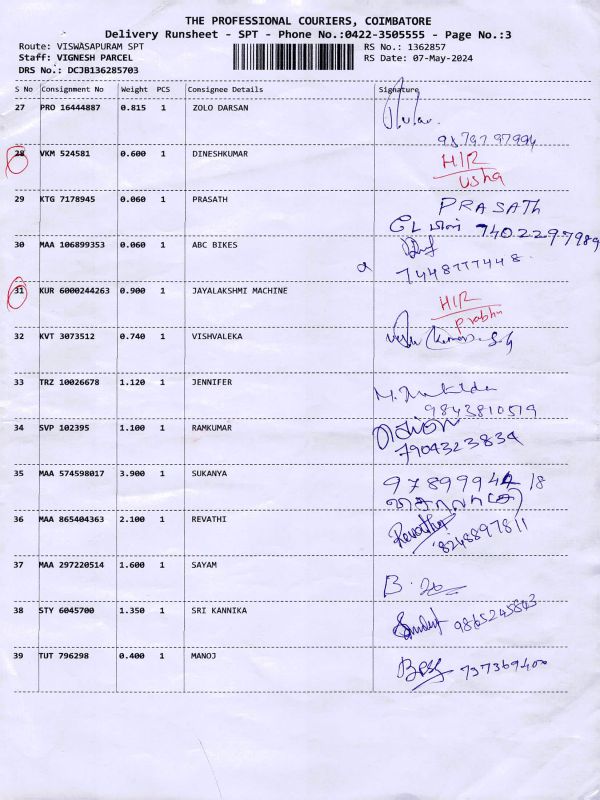 THE PROFESSIONAL COURIERS, COIMBATORE
Delivery Runsheet - SPT - Phone No.:0422-3505555 - Page No.:3
Route: VISWASAPURAM SPT RS No.: 1362857
Staff: VIGNESH PARCEL RS Date: 07-May-2024
DRS No.: DCJB136285703
S No Consignment No Weight PCS Consignee Details Signature
27 PRO 16444887 0.815 1 ZOLO DARSAN
28 VKM 524581 0.600 1 DINESHKUMAR H/R
usha
29 KTG 7178945 0.060 1 PRASATH PRASATH
7402297989
30 MAA 106899353 0.060 1 ABC BIKES
7448777448
31 KUR 6000244263 0.900 1 JAYALAKSHMI MACHINE H/R
Prabhu
32 KVT 3073512 0.740 1 VISHVALEKA
33 TRZ 10026678 1.120 1 JENNIFER
9843810519
34 SVP 102395 1.100 1 RAMKUMAR
7904323834
35 MAA 574598017 3.900 1 SUKANYA
36 MAA 865404363 2.100 1 REVATHI Revathy
8248897811
37 MAA 297220514 1.600 1 SAYAM
38 STY 6045700 1.350 1 SRI KANNIKA 9865245803
39 TUT 796298 0.400 1 MANOJ